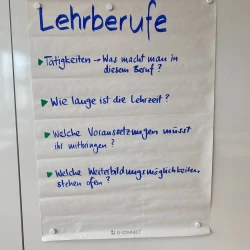 Lehrberufe
Tätigkeiten → Was macht man in
diesem Beruf?
Wie lange ist die Lehrzeit?
Welche Voraussetzungen müsst
ihr mitbringen?
Welche Weiterbildungsmöglichkeiten
stehen offen?